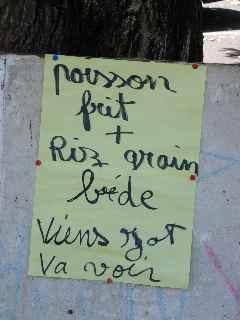 poisson
frit
+
Riz grain
bréde
Viens zot
Va voir